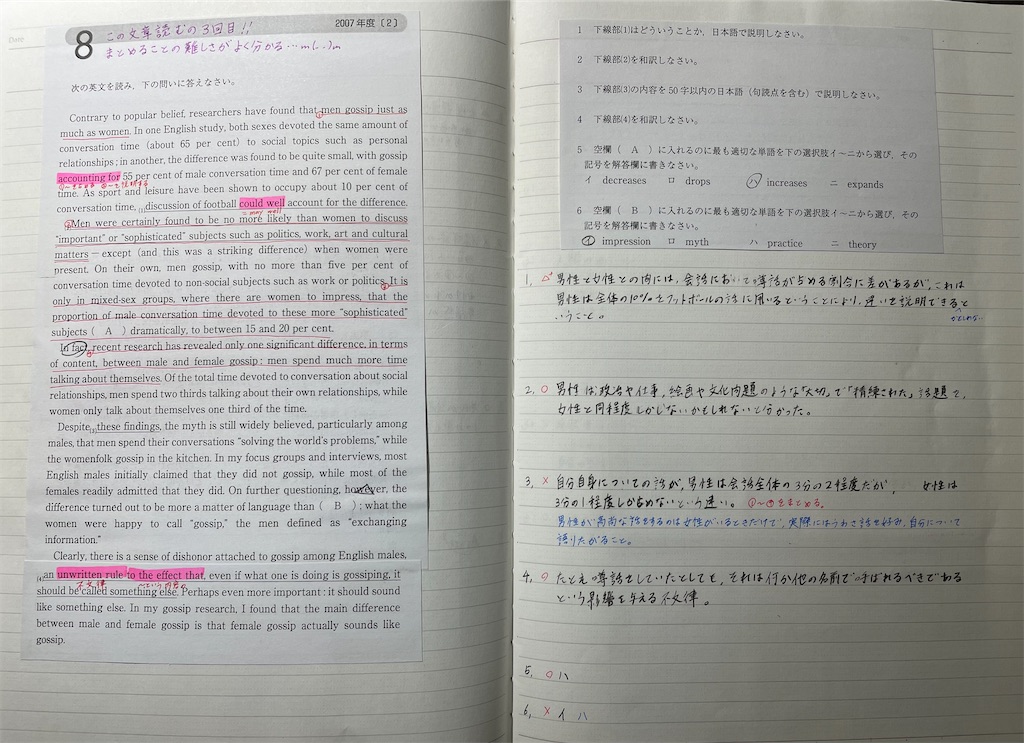 Date
8
この文章読むの3回目!!
2007年度〔2〕
まとめることの難しさがよく分かる…m(_ _)m
次の英文を読み、下の問いに答えなさい。
Contrary to popular belief, researchers have found that ①men gossip just as
much as women. In one English study, both sexes devoted the same amount of
conversation time (about 65 per cent) to social topics such as personal
relationships; in another, the difference was found to be quite small, with gossip
accounting for 55 per cent of male conversation time and 67 per cent of female
①〜を占める ②〜を説明する
time. As sport and leisure have been shown to occupy about 10 per cent of
conversation time, (1)discussion of football could well account for the difference.
= may well
②Men were certainly found to be no more likely than women to discuss
"important" or "sophisticated" subjects such as politics, work, art and cultural
matters — except (and this was a striking difference) when women were
present. On their own, men gossip, with no more than five per cent of
conversation time devoted to non-social subjects such as work or politics. It is
only in mixed-sex groups, where there are women to impress, that the
proportion of male conversation time devoted to these more "sophisticated"
subjects ( A ) dramatically, to between 15 and 20 per cent.
In fact, recent research has revealed only one significant difference, in terms
of content, between male and female gossip: men spend much more time
talking about themselves. Of the total time devoted to conversation about social
relationships, men spend two thirds talking about their own relationships, while
women only talk about themselves one third of the time.
Despite (3)these findings, the myth is still widely believed, particularly among
males, that men spend their conversations "solving the world's problems," while
the womenfolk gossip in the kitchen. In my focus groups and interviews, most
English males initially claimed that they did not gossip, while most of the
females readily admitted that they did. On further questioning, however, the
difference turned out to be more a matter of language than ( B ): what the
women were happy to call "gossip," the men defined as "exchanging
information."
Clearly, there is a sense of dishonor attached to gossip among English males,
(4)an unwritten rule to the effect that, even if what one is doing is gossiping, it
不文律 〜という内容の
should be called something else. Perhaps even more important: it should sound
like something else. In my gossip research, I found that the main difference
between male and female gossip is that female gossip actually sounds like
gossip.
1 下線部(1)はどういうことか、日本語で説明しなさい。
2 下線部(2)を和訳しなさい。
3 下線部(3)の内容を50字以内の日本語（句読点を含む）で説明しなさい。
4 下線部(4)を和訳しなさい。
5 空欄（ A ）に入れるのに最も適切な単語を下の選択肢イ〜ニから選び、その
記号を解答欄に書きなさい。
イ decreases ロ drops ハ increases ニ expands
6 空欄（ B ）に入れるのに最も適切な単語を下の選択肢イ〜ニから選び、その
記号を解答欄に書きなさい。
イ impression ロ myth ハ practice ニ theory
1, △ 男性と女性との間には、会話において噂話が占める割合に差があるが、これは
男性は全体の10%をフットボールの話に用いるということにより、違いを説明できると
いうこと。
かもしれない
2, ○ 男性は、政治や仕事、絵画や文化問題のような「大切」で「精練された」話題を、
女性と同程度しかしないかもしれないと分かった。
3, × 自分自身についての話が、男性は会話全体の3分の2程度だが、 女性は
3分の1程度しか占めないという違い。 ①〜④をまとめる。
男性が高尚な話をするのは女性がいるときだけで、実際にはうわさ話を好み、自分について
語りたがること。
4, ○ たとえ噂話をしていたとしても、それは何か他の名前で呼ばれるべきである
という影響を与える不文律。
5, ○ ハ
6, × イ ハ